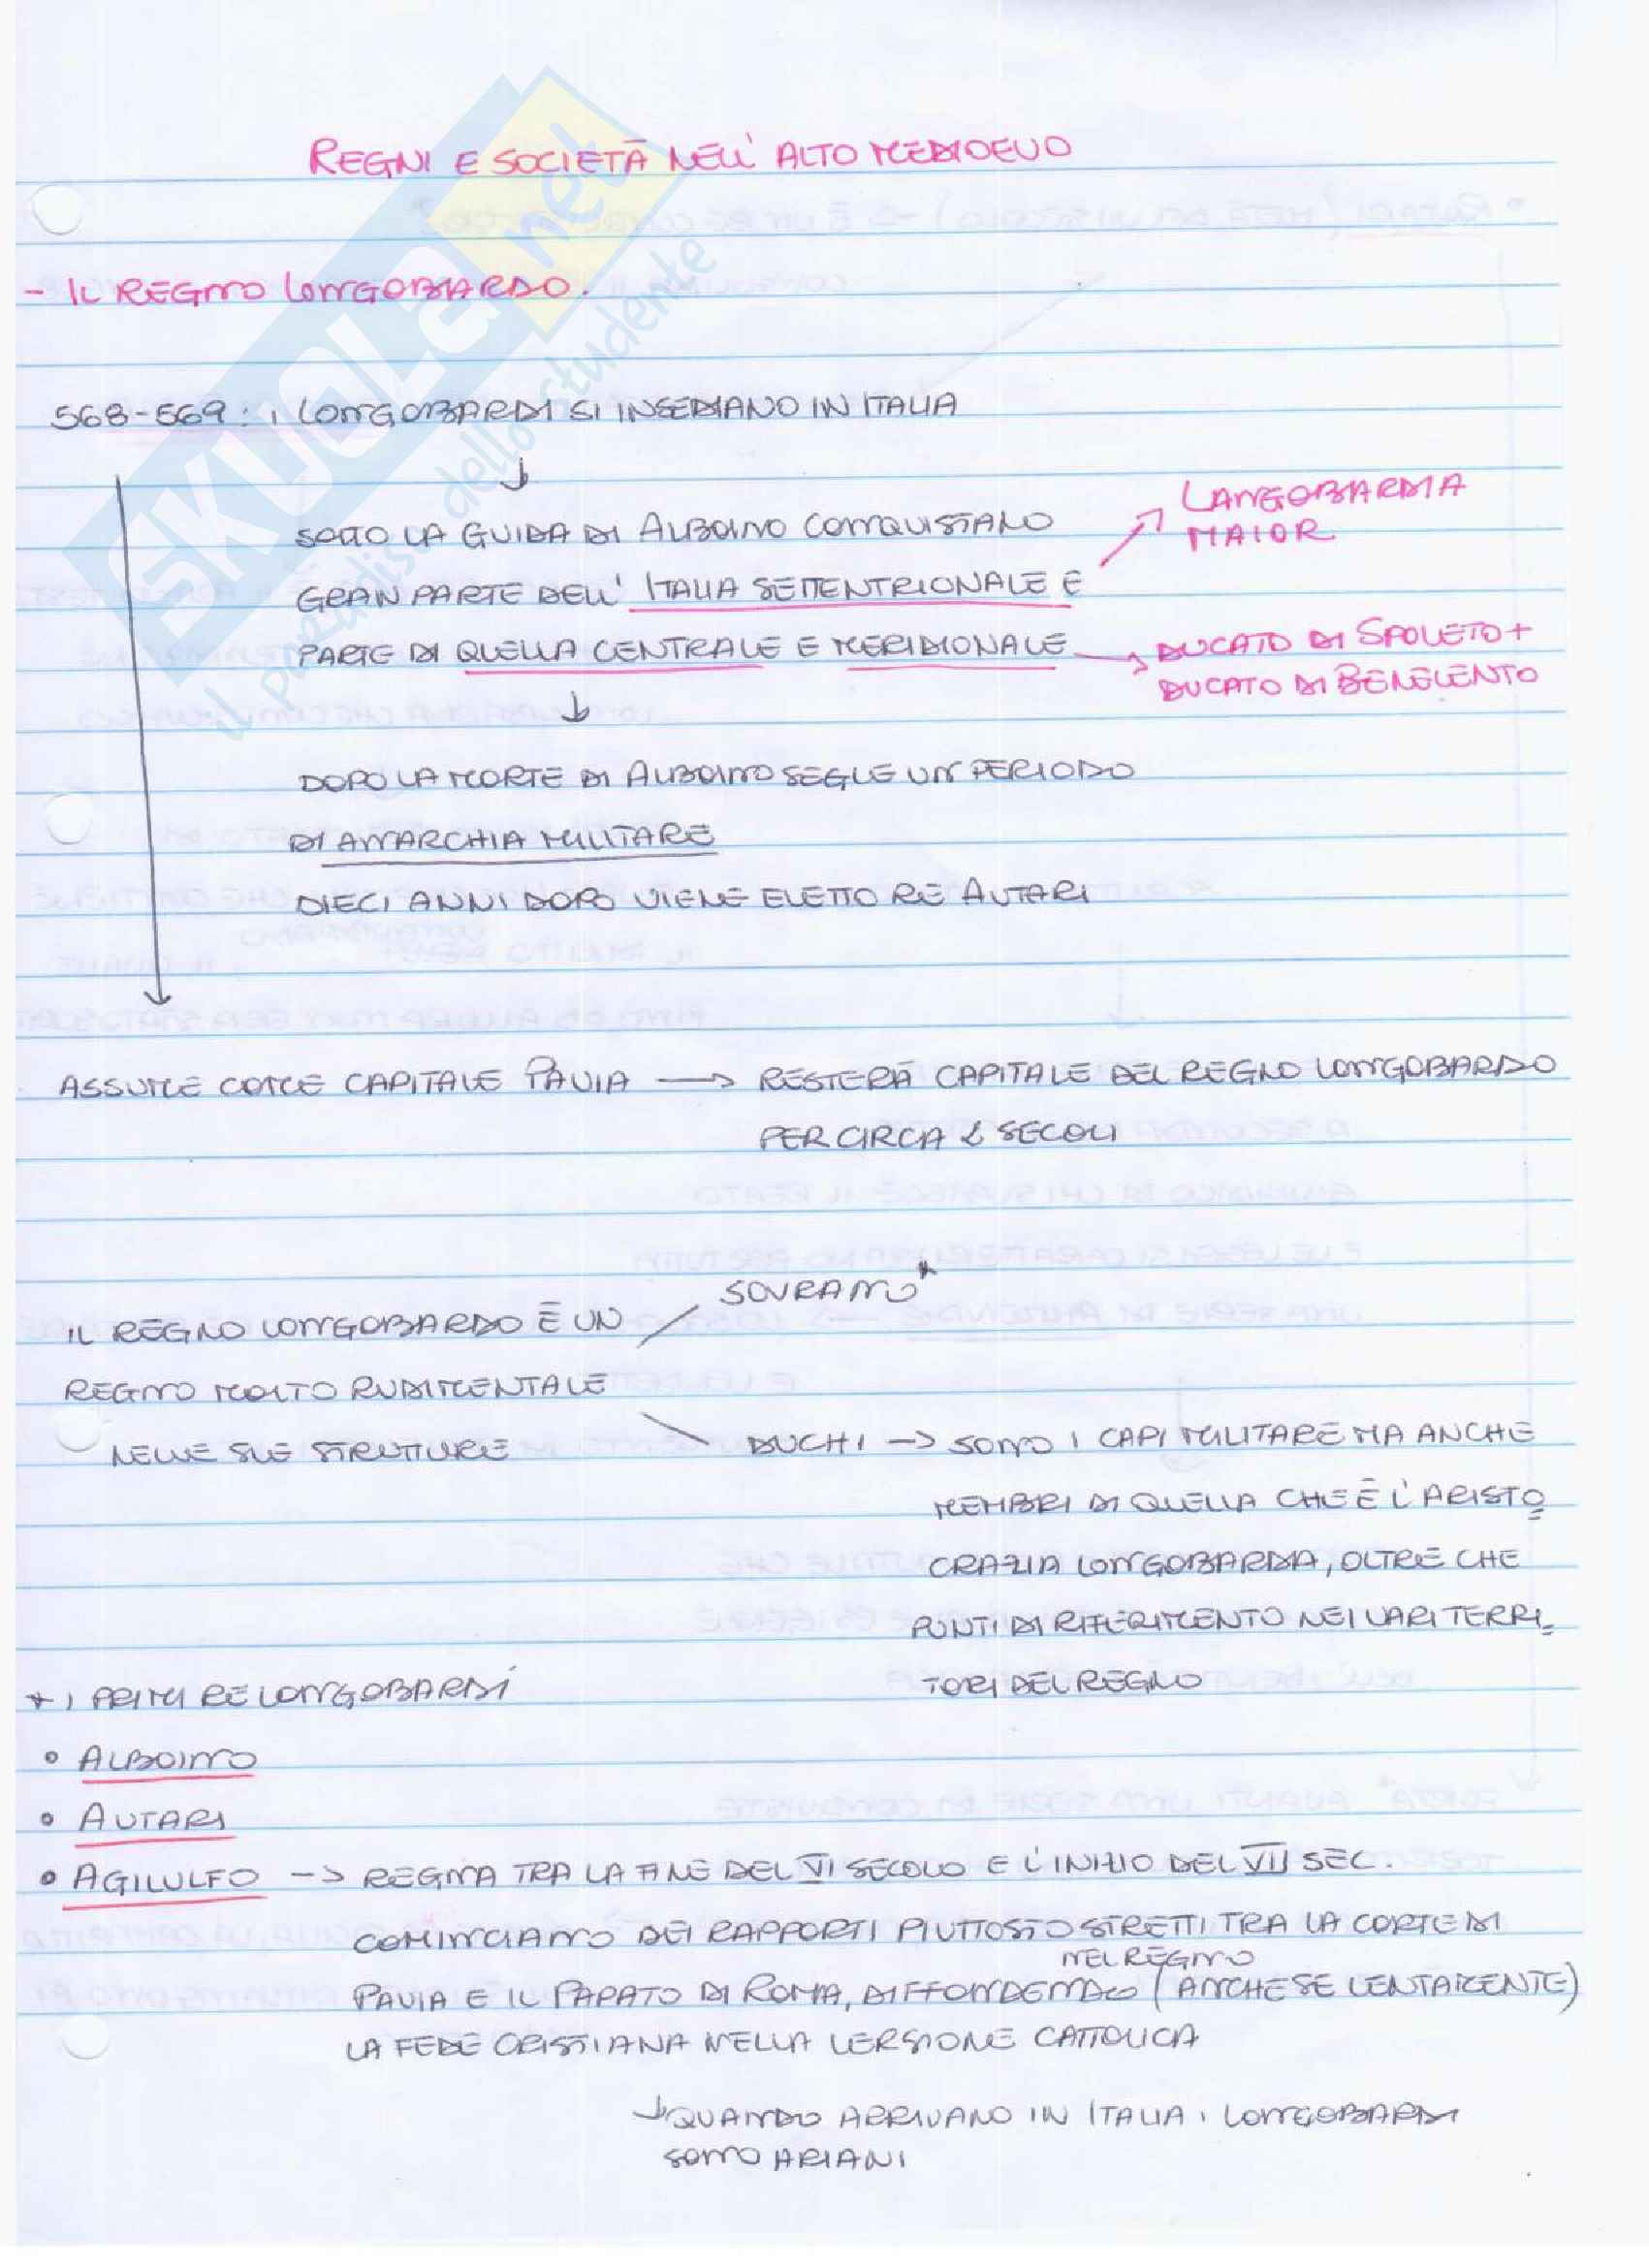 REGNI E SOCIETÀ NELL' ALTO MEDIOEVO
- IL REGNO LONGOBARDO.
568-569: I LONGOBARDI SI INSEDIANO IN ITALIA
↓
SOTTO LA GUIDA DI ALBOINO CONQUISTANO
GRAN PARTE DELL' ITALIA SETTENTRIONALE E
↗ LANGOBARDIA
MAIOR
PARTE DI QUELLA CENTRALE E MERIDIONALE → DUCATO DI SPOLETO +
DUCATO DI BENEVENTO
↓
DOPO LA MORTE DI ALBOINO SEGUE UN PERIODO
DI ANARCHIA MILITARE
DIECI ANNI DOPO VIENE ELETTO RE AUTARI
ASSUME COME CAPITALE PAVIA → RESTERÀ CAPITALE DEL REGNO LONGOBARDO
PER CIRCA 2 SECOLI
SOVRANO*
IL REGNO LONGOBARDO È UN
REGNO MOLTO RUDIMENTALE
NELLE SUE STRUTTURE
DUCHI → SONO I CAPI MILITARE MA ANCHE
MEMBRI DI QUELLA CHE È L'ARISTO
CRAZIA LONGOBARDA, OLTRE CHE
PUNTI DI RIFERIMENTO NEI VARI TERRI=
TORI DEL REGNO
* I PRIMI RE LONGOBARDI
• ALBOINO
• AUTARI
• AGILULFO → REGNA TRA LA FINE DEL VI SECOLO E L'INIZIO DEL VII SEC.
COMINCIANO DEI RAPPORTI PIUTTOSTO STRETTI TRA LA CORTE DI
NEL REGNO
PAVIA E IL PAPATO DI ROMA, DIFFONDENDO (ANCHE SE LENTAMENTE)
LA FEDE CRISTIANA NELLA VERSIONE CATTOLICA
↳ QUANDO ARRIVANO IN ITALIA I LONGOBARDI
SONO ARIANI
SKUOLA.net
il paradiso dello studente